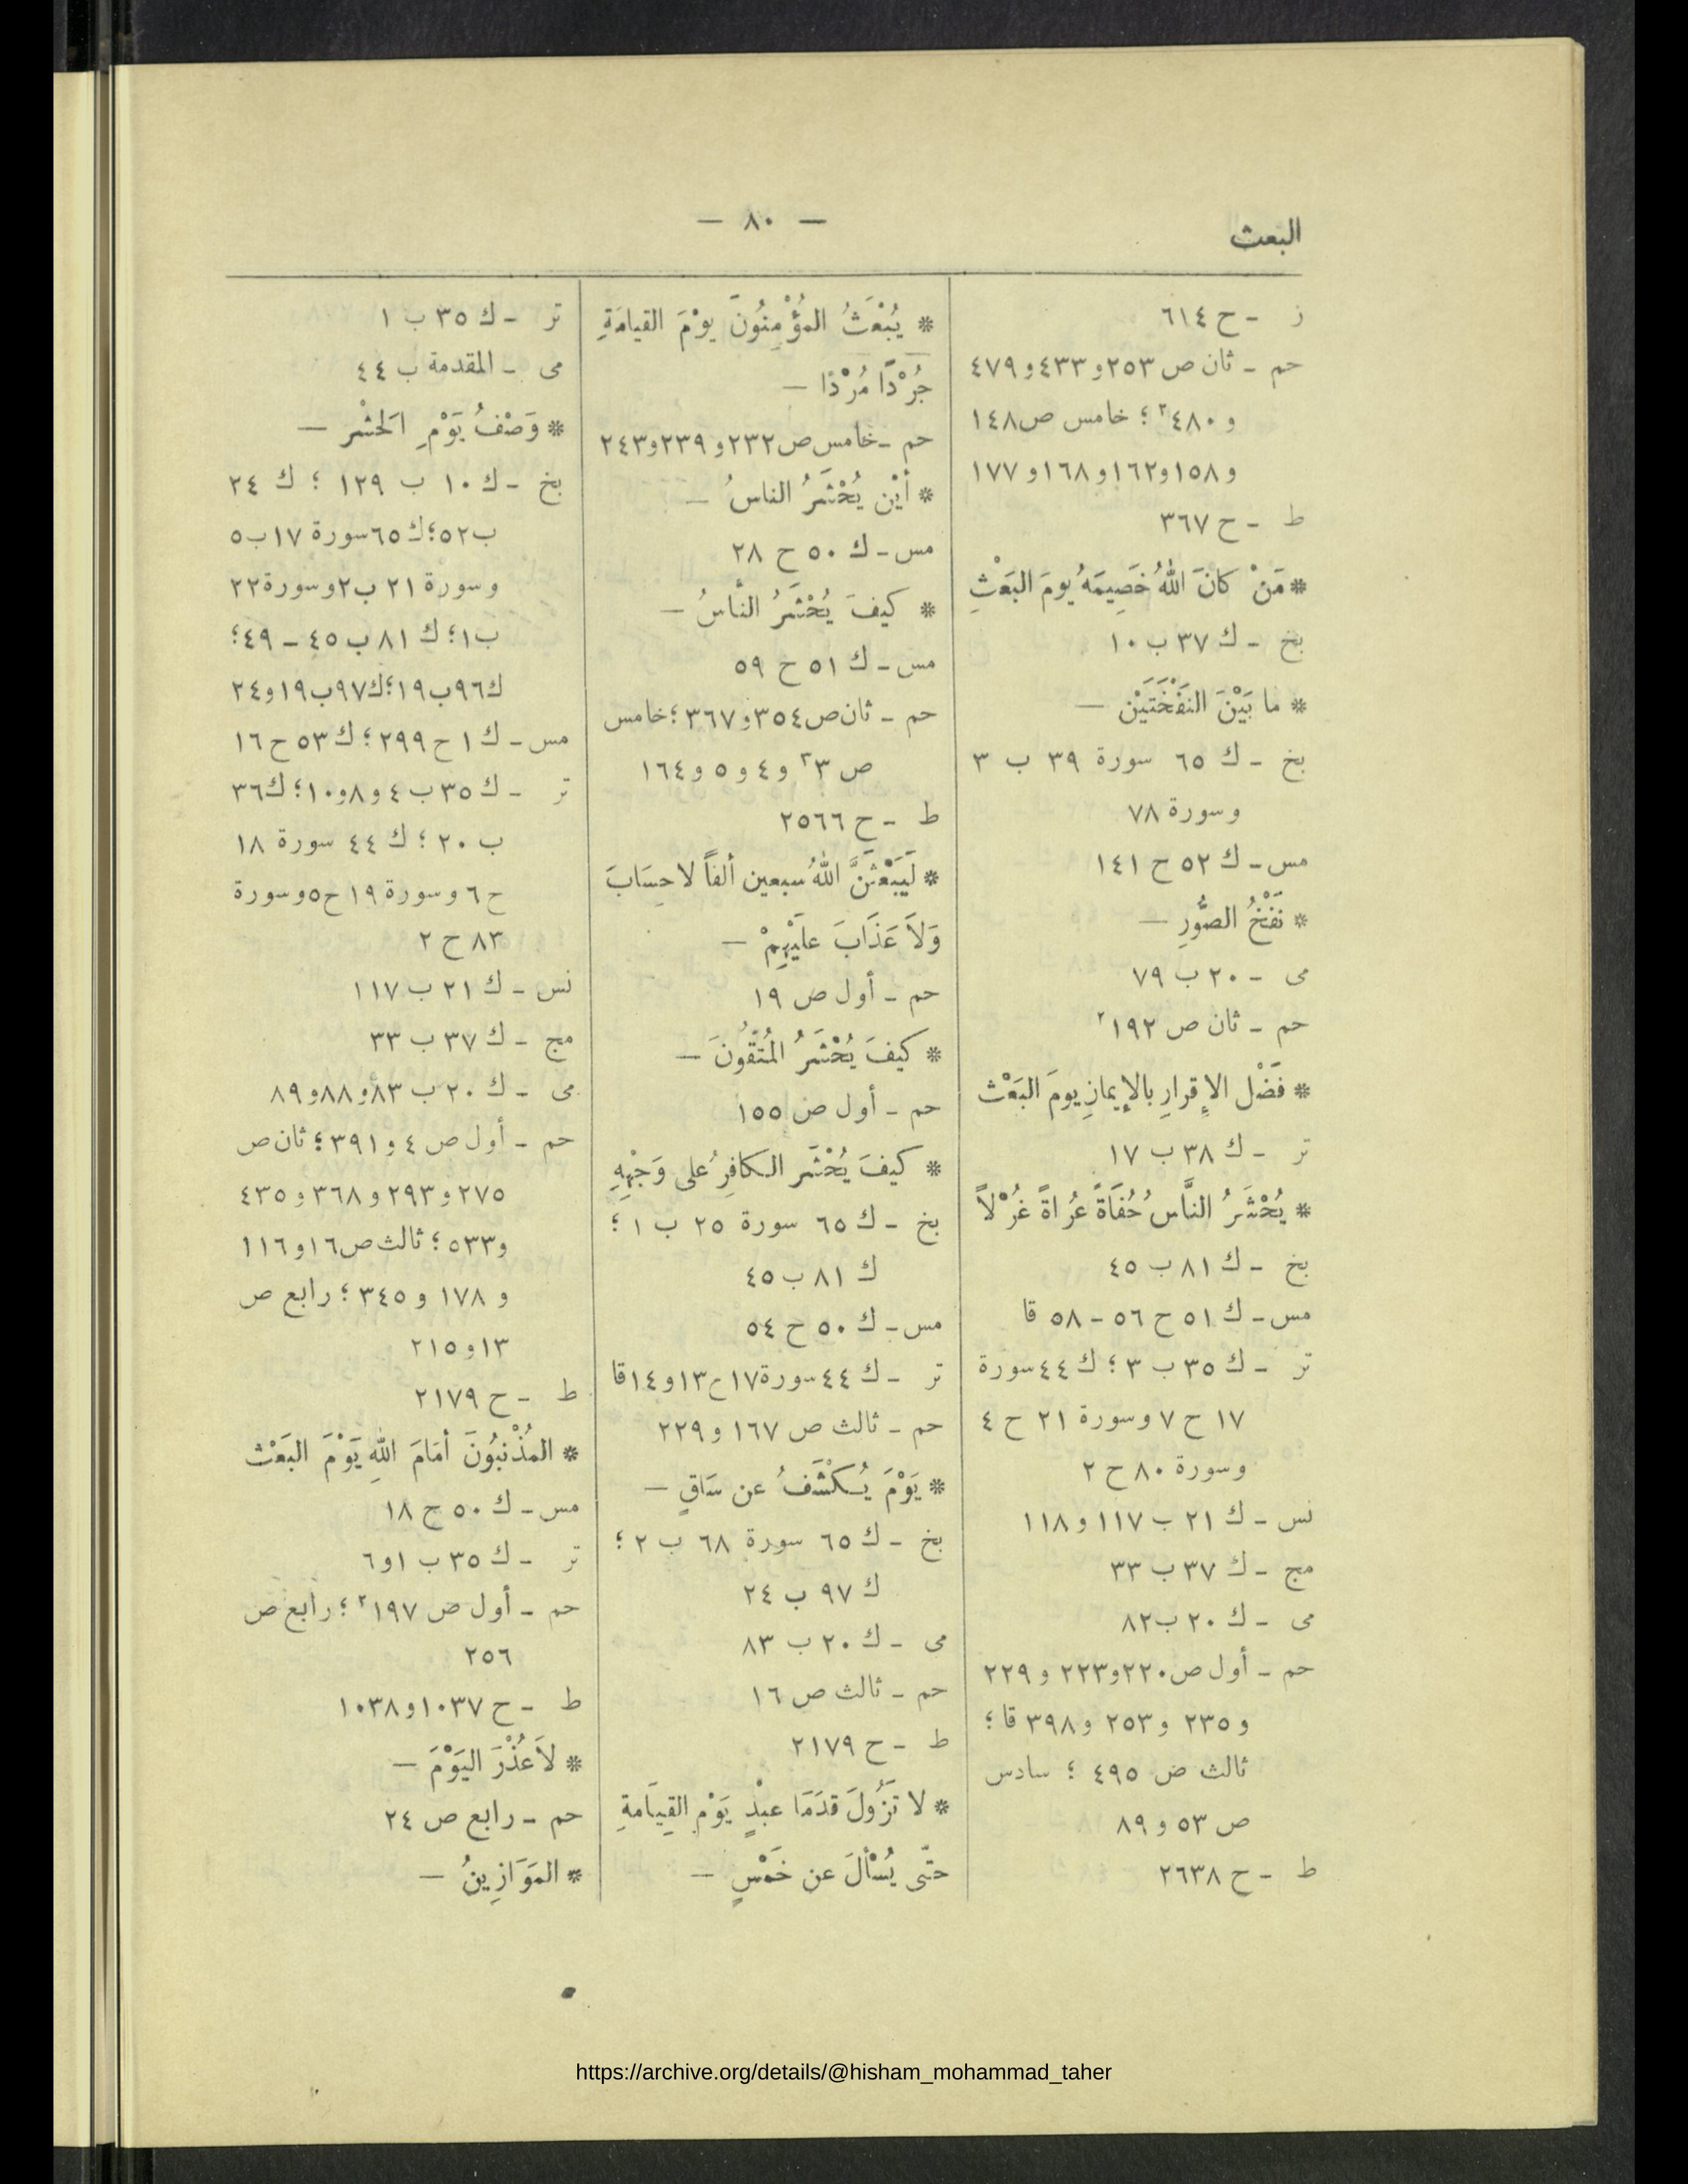 البعث
— ٨٠ —
ز - ح ٦١٤
حم - ثان ص ٢٥٣ و ٤٣٣ و ٤٧٩
و ٤٨٠٢ ؛ خامس ص ١٤٨
و ١٥٨ و ١٦٢ و ١٦٨ و ١٧٧
ط - ح ٣٦٧
* مَنْ كانَ اللهُ خَصِيمَهُ يومَ البَعْثِ
بخ - ك ٣٧ ب ١٠
* ما بَيْنَ النَفْخَتَيْن —
بخ - ك ٦٥ سورة ٣٩ ب ٣
وسورة ٧٨
مس - ك ٥٢ ح ١٤١
* نَفْخُ الصُّورِ —
مى - ٢٠ ب ٧٩
حم - ثان ص ١٩٢٢
* فَضْل الإقرارِ بالإيمانِ يومَ البَعْث
تر - ك ٣٨ ب ١٧
* يُحْشَرُ النَّاسُ حُفَاةً عُرَاةً غُرْلاً
بخ - ك ٨١ ب ٤٥
مس - ك ٥١ ح ٥٦ - ٥٨ قا
تر - ك ٣٥ ب ٣ ؛ ك ٤٤ سورة
١٧ ح ٧ وسورة ٢١ ح ٤
وسورة ٨٠ ح ٢
نس - ك ٢١ ب ١١٧ و ١١٨
مج - ك ٣٧ ب ٣٣
مى - ك ٢٠ ب ٨٢
حم - أول ص ٢٢٠ و ٢٢٣ و ٢٢٩
و ٢٣٥ و ٢٥٣ و ٣٩٨ قا ؛
ثالث ص ٤٩٥ ؛ سادس
ص ٥٣ و ٨٩
ط - ح ٢٦٣٨
* يُبْعَثُ المؤْمِنُونَ يوْمَ القيامَةِ
جُرْدًا مُرْدًا —
حم - خامس ص ٢٣٢ و ٢٣٩ و ٢٤٣
* أيْن يُحْشَرُ الناسُ —
مس - ك ٥٠ ح ٢٨
* كيفَ يُحْشَرُ النَّاسُ —
مس - ك ٥١ ح ٥٩
حم - ثان ص ٣٥٤ و ٣٦٧ ؛ خامس
ص ٣٣ و ٤ و ٥ و ١٦٤
ط - ح ٢٥٦٦
* لَيَبْعَثَنَّ اللهُ سبعين ألفاً لا حِسَابَ
وَلاَ عَذَابَ علَيْهِمْ —
حم - أول ص ١٩
* كيفَ يُحْشَرُ المُتَّقُونَ —
حم - أول ص ١٥٥
* كيفَ يُحْشَر الكافِرُ على وَجْهِهِ
بخ - ك ٦٥ سورة ٢٥ ب ١ ؛
ك ٨١ ب ٤٥
مس - ك ٥٠ ح ٥٤
تر - ك ٤٤ سورة ١٧ ح ١٣ و ١٤ قا
حم - ثالث ص ١٦٧ و ٢٢٩
* يَوْمَ يُكْشَفُ عن سَاقٍ —
بخ - ك ٦٥ سورة ٦٨ ب ٢ ؛
ك ٩٧ ب ٢٤
مى - ك ٢٠ ب ٨٣
حم - ثالث ص ١٦
ط - ح ٢١٧٩
* لا تَزُولَ قدَمَا عبْدٍ يَوْمِ القِيَامةِ
حتّى يُسْألَ عن خَمْسٍ —
تر - ك ٣٥ ب ١
مى - المقدمة ب ٤٤
* وَصْفُ يَوْمِ الحَشْر —
بخ - ك ١٠ ب ١٢٩ ؛ ك ٢٤
ب ٥٢ ؛ ك ٦٥ سورة ١٧ ب ٥
وسورة ٢١ ب ٢ وسورة ٢٢
ب ١ ؛ ك ٨١ ب ٤٥ - ٤٩ ؛
ك ٩٦ ب ١٩ ؛ ك ٩٧ ب ١٩ و ٢٤
مس - ك ١ ح ٢٩٩ ؛ ك ٥٣ ح ١٦
تر - ك ٣٥ ب ٤ و ٨ و ١٠ ؛ ك ٣٦
ب ٢٠ ؛ ك ٤٤ سورة ١٨
ح ٦ وسورة ١٩ ح ٥ وسورة
٨٣ ح ٢
نس - ك ٢١ ب ١١٧
مج - ك ٣٧ ب ٣٣
مى - ك ٢٠ ب ٨٣ و ٨٨ و ٨٩
حم - أول ص ٤ و ٣٩١ ؛ ثان ص
٢٧٥ و ٢٩٣ و ٣٦٨ و ٤٣٥
و ٥٣٣ ؛ ثالث ص ١٦ و ١١٦
و ١٧٨ و ٣٤٥ ؛ رابع ص
١٣ و ٢١٥
ط - ح ٢١٧٩
* المُذْنبُونَ أمَامَ اللهِ يَوْمَ البَعْث
مس - ك ٥٠ ح ١٨
تر - ك ٣٥ ب ١ و ٦
حم - أول ص ١٩٧٢ ؛ رابع ص
٢٥٦
ط - ح ١٠٣٧ و ١٠٣٨
* لاَ عُذْرَ اليَوْمَ —
حم - رابع ص ٢٤
* المَوَازِينُ —
https://archive.org/details/@hisham_mohammad_taher